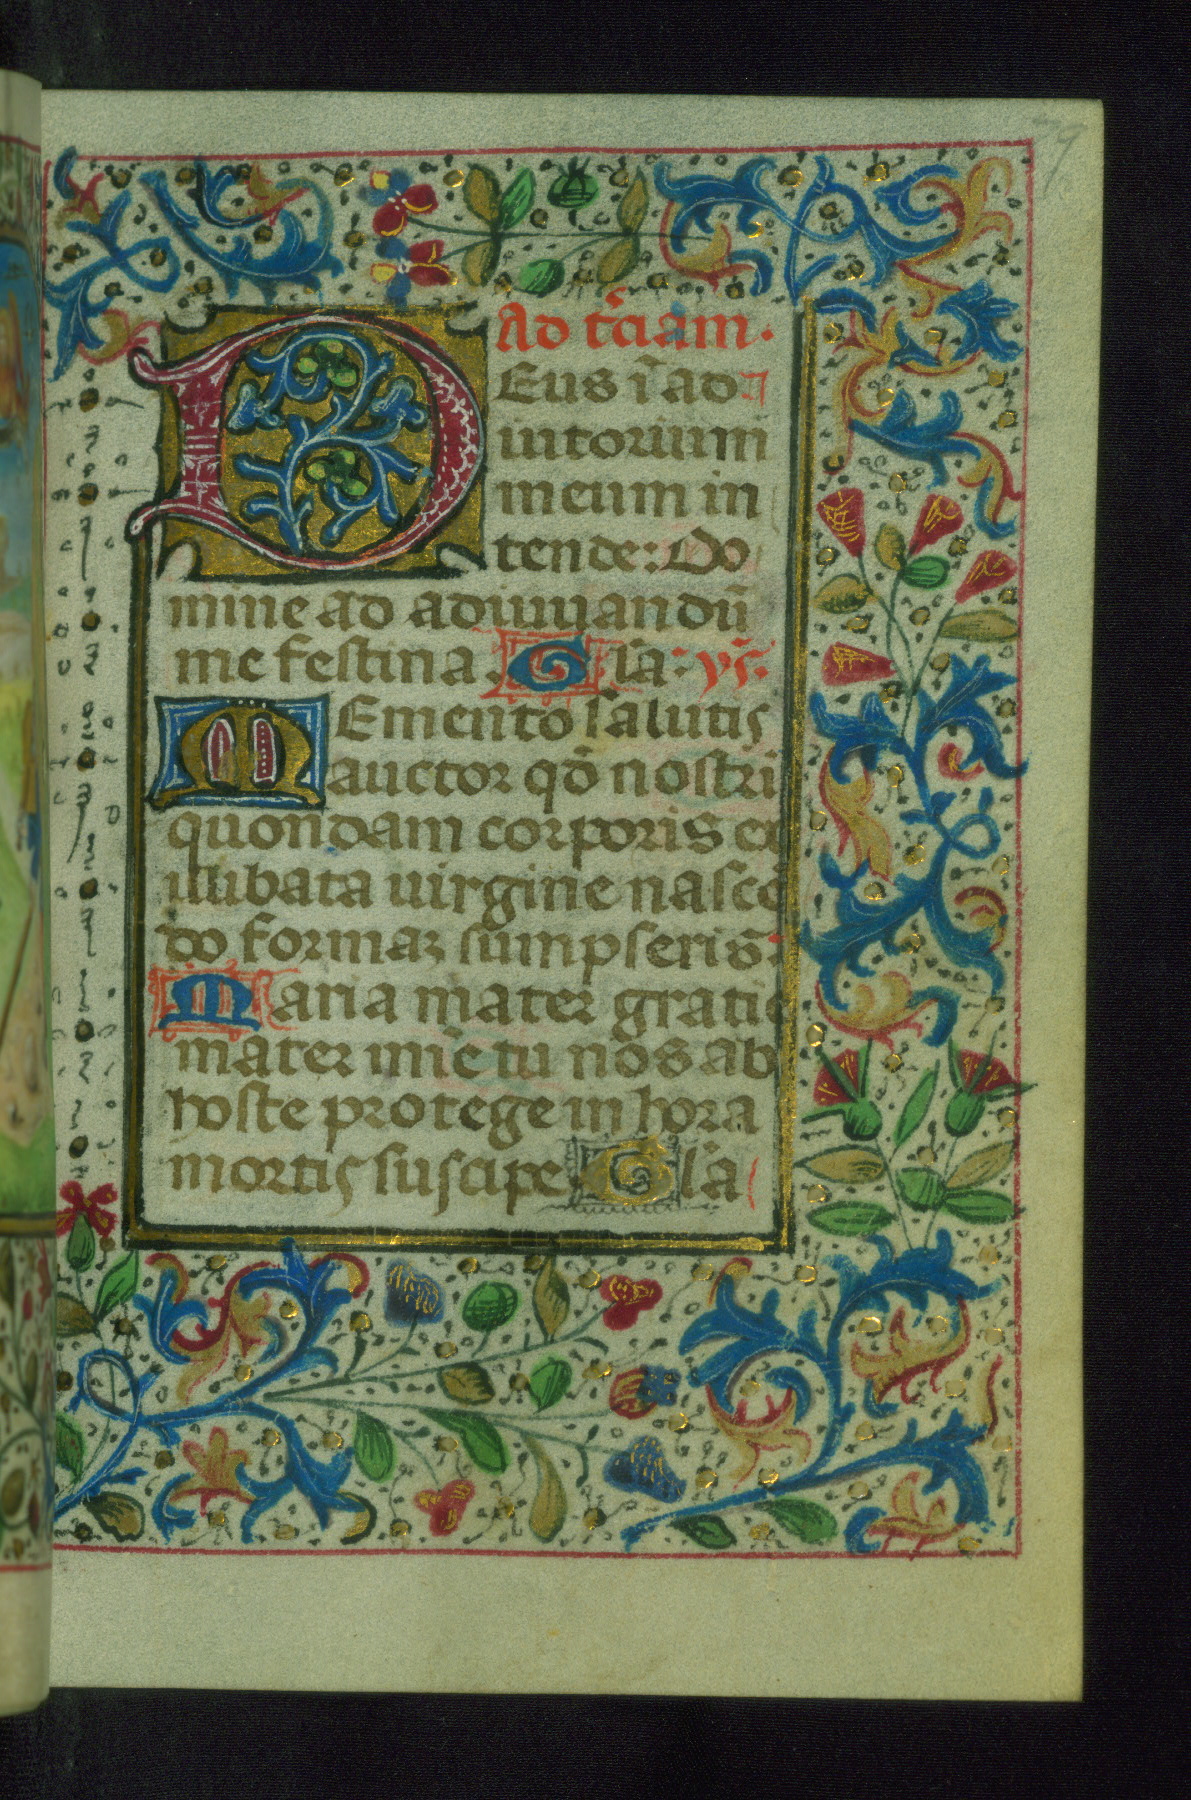 79
Ad tc̄iam.
DEus ī ad
iutorium
meum in
tende: Do
mine ad adiuuandū
me festina Gl̄a: ys̄:
MEmento salutis
auctor qđ nostri
quondam corporis ex
illibata uirgine nascē
do formaꝫ sumpseris̄
Maria mater gratie
mater mīe tu nos ab
hoste protege in hora
mortis suscipe Gl̄a